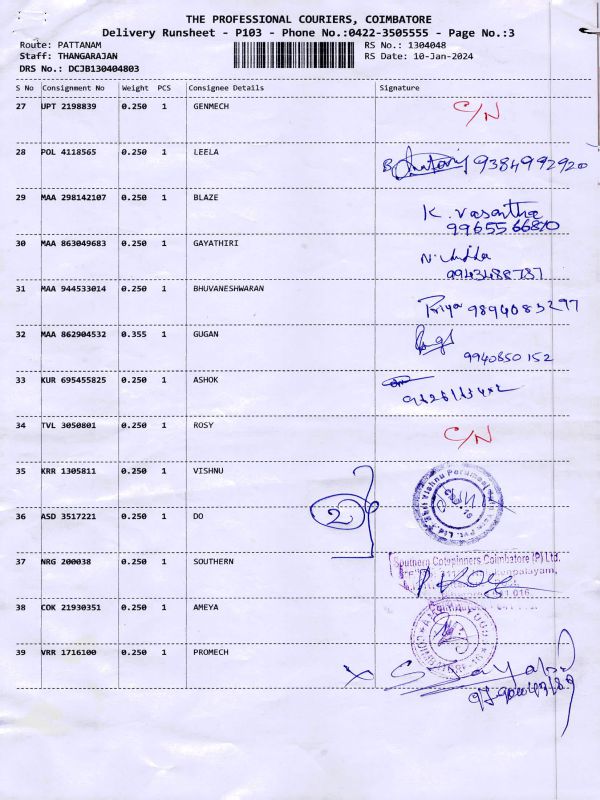 THE PROFESSIONAL COURIERS, COIMBATORE
Delivery Runsheet - P103 - Phone No.:0422-3505555 - Page No.:3
Route: PATTANAM RS No.: 1304048
Staff: THANGARAJAN RS Date: 10-Jan-2024
DRS No.: DCJB130404803
S No Consignment No Weight PCS Consignee Details Signature
27 UPT 2198839 0.250 1 GENMECH C/N
28 POL 4118565 0.250 1 LEELA 9384992920
29 MAA 298142107 0.250 1 BLAZE K. Vasantha
9965566870
30 MAA 863049683 0.250 1 GAYATHIRI
9943488787
31 MAA 944533014 0.250 1 BHUVANESHWARAN Priya 9894083297
32 MAA 862904532 0.355 1 GUGAN
9940850152
33 KUR 695455825 0.250 1 ASHOK
34 TVL 3050801 0.250 1 ROSY C/N
35 KRR 1305811 0.250 1 VISHNU
36 ASD 3517221 0.250 1 DO 2
37 NRG 200038 0.250 1 SOUTHERN Southern Cotspinners Coimbatore (P) Ltd.
38 COK 21930351 0.250 1 AMEYA
39 VRR 1716100 0.250 1 PROMECH